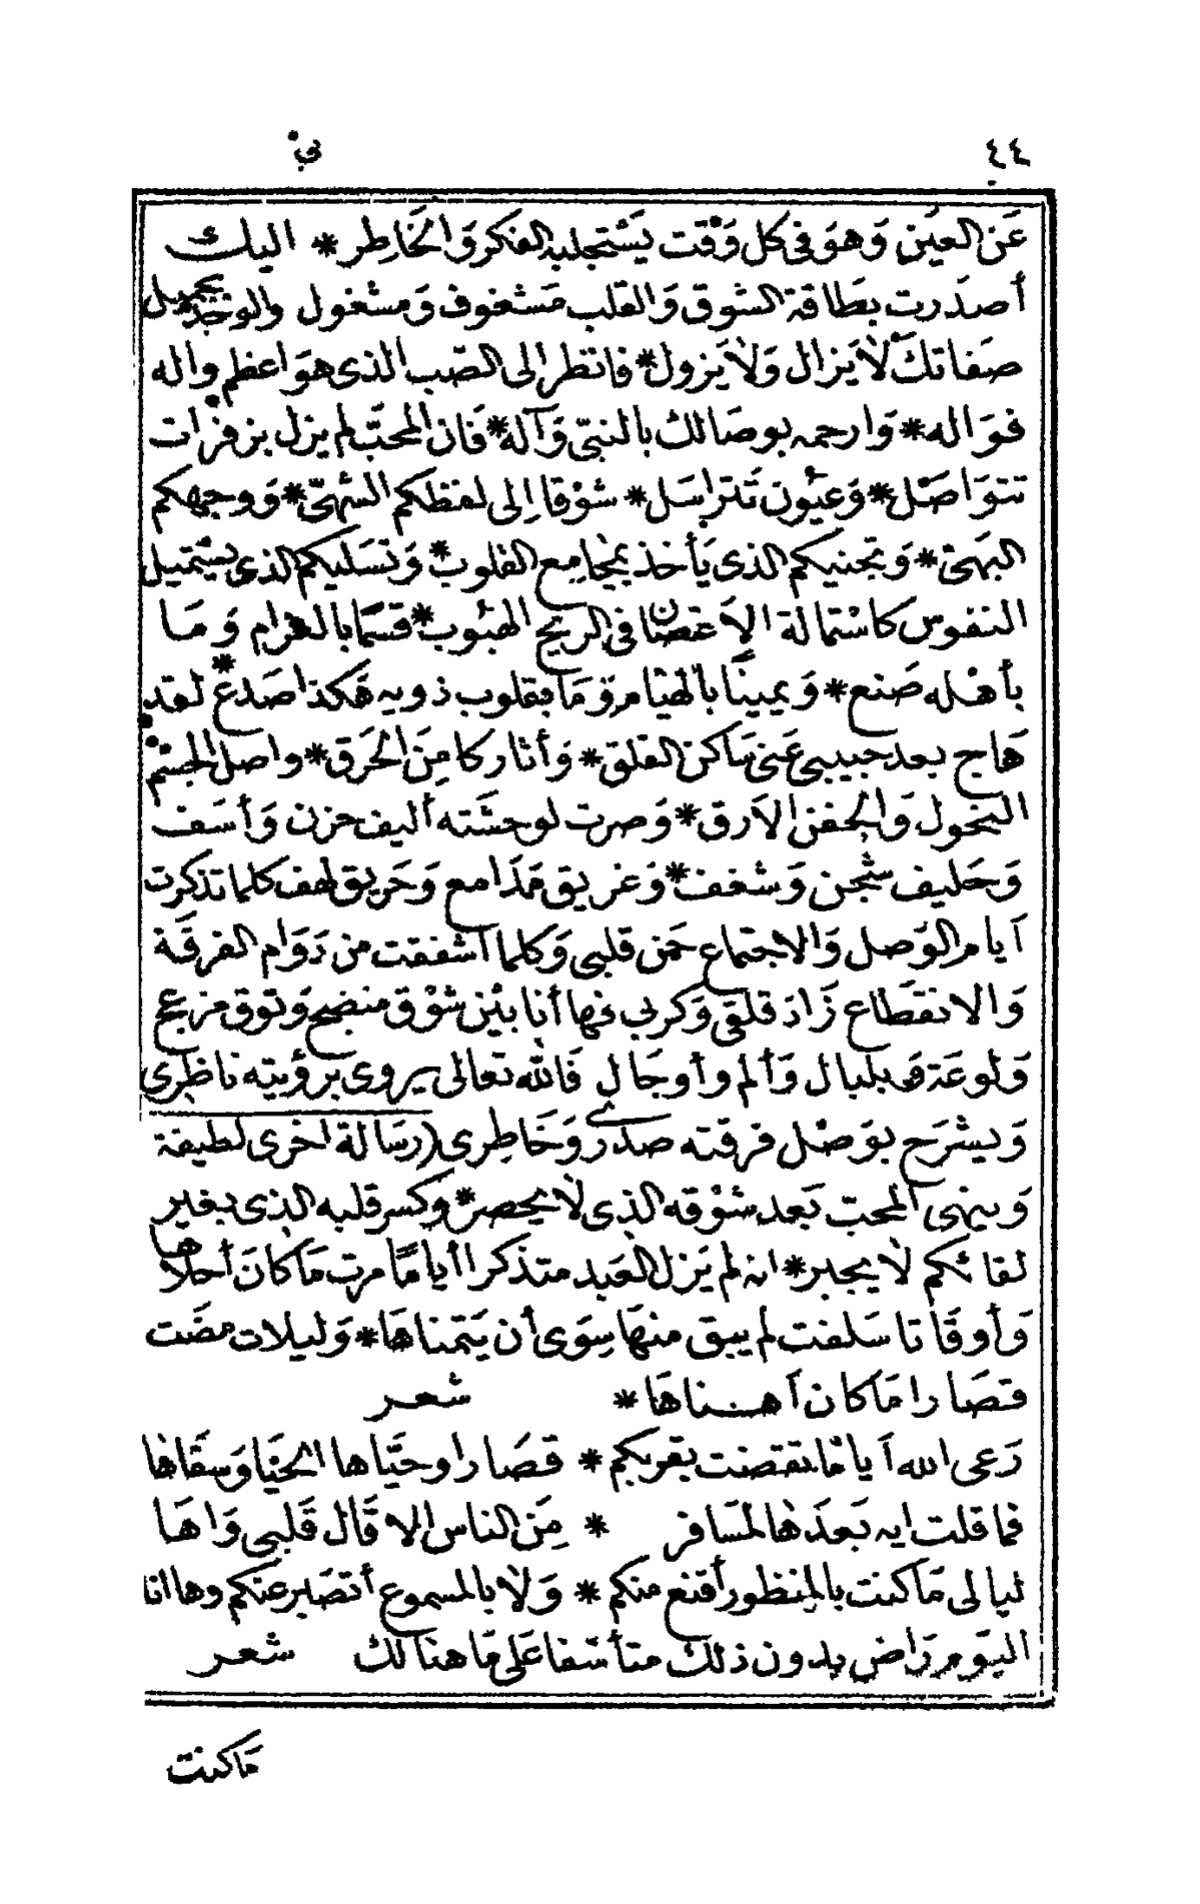 ٤٤ في
عَن العين وَهوَ في كل وَقت يَسْتجلبه الفكر وَالخَاطِر * اليك
أصدَرت بطَاقة الشوق وَالقلب مَشغوف وَمشغول والوَجد بجميل
صَفاتك لاَ يَزال وَلاَ يَزول * فانظر الى الصّب الذي هوَ اعظم واله
فوَاله * وَارحمه بوصَالك بالنبيّ وَآله * فَان المحبّ لم يزل بزفرات
تتوَاصَل * وَعيُون تَتراسَل * شوْقا اِلى لفظكم الشهيّ * وَوجهكم
البَهيّ * وَتجنيكم الذي يَأخذ بمجامِع القلوب * وَتسَليكم الذي يستميل
النفوس كاسْتمالة الاَغصَان في الريح الهبُوب * قسَمًا بالغرام وَمَا
بأهْله صَنع * وَيمينًا بالهيَام وَمَا بقلوب ذويه هَكذا صَدع * لقد
هَاج بعد حبيبي عَني سَاكن القلق * وَأثار كامِنَ الحرَق * واصل الجسم
النحول وَالجفن الاَرق * وَصرت لوحشَته أليف حزن وَأسَف
وَحَليف شجن وَشغف * وَغريق مَدَامع وَحَريق لهف كلما تذكرت
آيام الوَصل وَالاجتماع حَن قلبي وَكلما أشفقت من دَوَام الفرقَة
وَالانقطَاع زَادَ قلقي وَكربي فها أنا بيْن شوْق منضج وَتوق مزعج
وَلوعَة وَبلبال وَألم وأوجَال فَالله تعالى يروي برؤيته ناظري
وَيشرَح بوَصْل فرقته صدري وَخَاطِري (رسَالة اخرى لطيفة
وَينهي المحبّ بَعد شوْقه الذي لاَ يحصر * وَكسر قلبه الذي بغير
لقائكم لاَ يجبر * انه لم يَزل العَبد متذكرا أيامًا مرت مَا كَانَ أحلاها
وَأوقَاتا سَلفت لم يبق منهَا سِوَى أن يَتمناهَا * وَليلات مضَت
قصَارا مَا كان آهـناهَا * شعر
رَعى الله آيامًا تقضت بقربكم * قصَارا وحَيّاها الحَيا وَسقَاها
فما قلت ايه بَعدَها لمسَافر * مِنَ الناس الا قَال قَلبي وَاهَا
ليالى مَا كنت بالمنظور أقنع منكم * وَلاَ بالمسموع أتصَبر عنكم وها انا
اليَوم رَاض بدون ذلك متأسّفا عَلى مَا هنالك شعر
مَا كنت